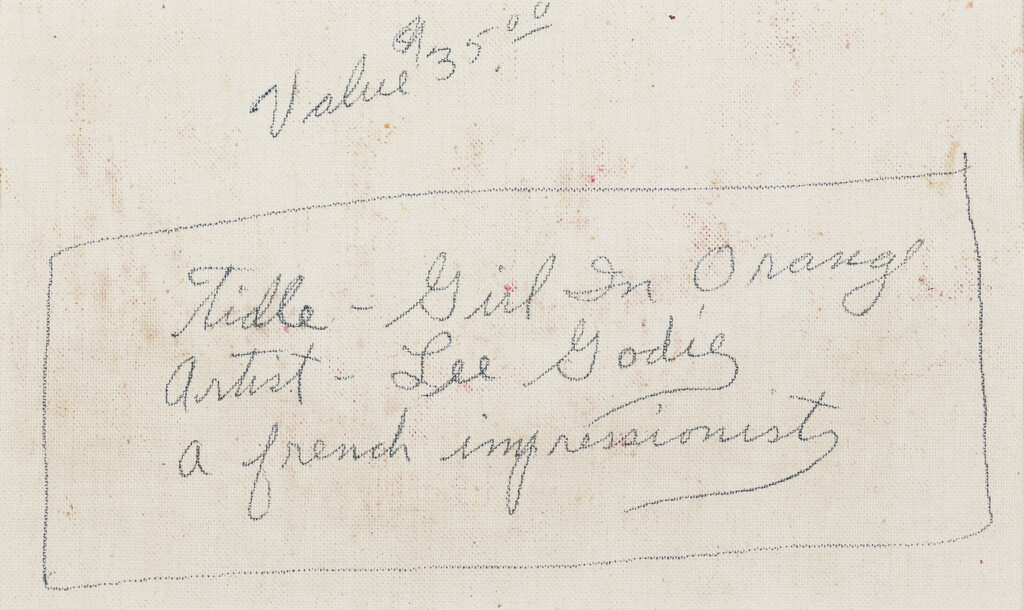 Value $35.00
Tidle - Girl In Orange
Artist - Lee Godie
a french impressionist